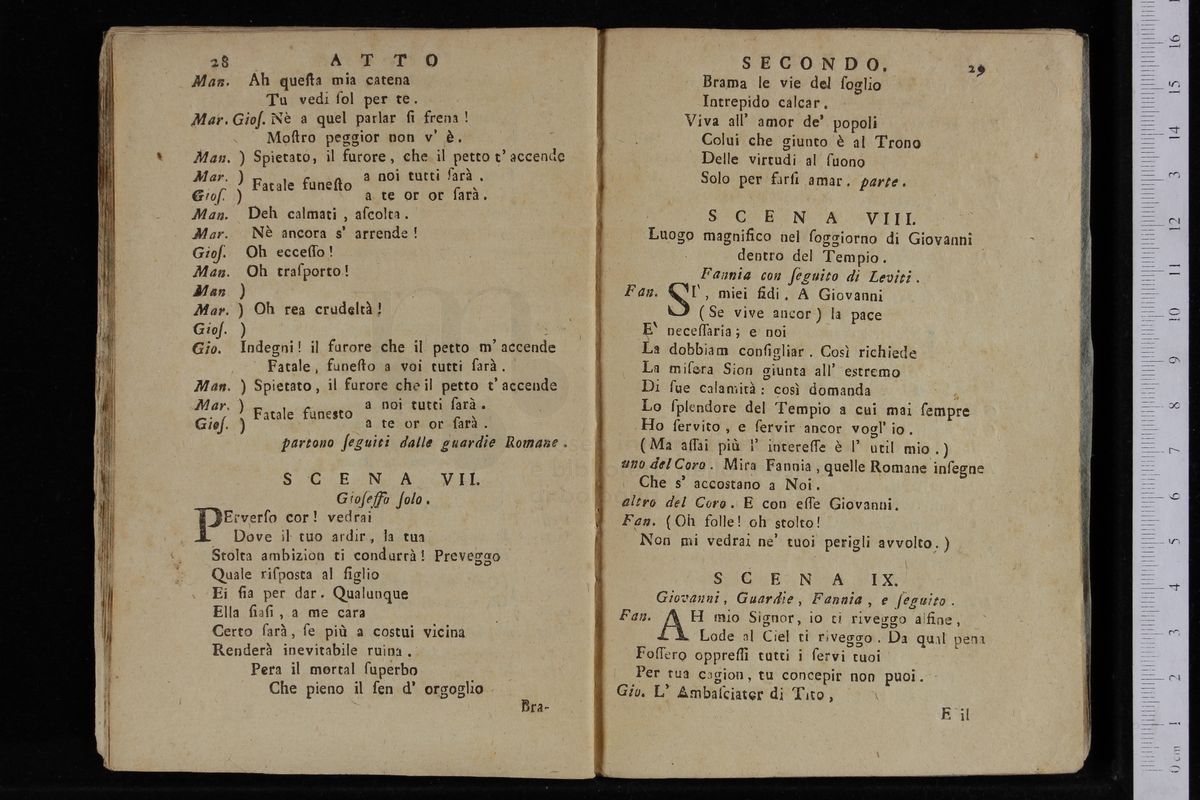 28 ATTO
Man. Ah queſta mia catena
Tu vedi ſol per te.
Mar. Gioſ. Nè a quel parlar ſi frena!
Moſtro peggior non v' è.
Man. ) Spietato, il furore, che il petto t' accende
Mar. ) Fatale funeſto a noi tutti ſarà.
Gioſ. ) a te or or ſarà.
Man. Deh calmati, aſcolta.
Mar. Nè ancora s' arrende!
Gioſ. Oh ecceſſo!
Man. Oh traſporto!
Man )
Mar. ) Oh rea crudeltà!
Gioſ. )
Gio. Indegni! il furore che il petto m' accende
Fatale, funeſto a voi tutti ſarà.
Man. ) Spietato, il furore che il petto t' accende
Mar. ) Fatale funesto a noi tutti ſarà.
Gioſ. ) a te or or ſarà.
partono ſeguiti dalle guardie Romane.
SCENA VII.
Gioſeffo ſolo.
PErverſo cor! vedrai
Dove il tuo ardir, la tua
Stolta ambizion ti condurrà! Preveggo
Quale riſposta al figlio
Ei ſia per dar. Qualunque
Ella ſiaſi, a me cara
Certo ſarà, ſe più a costui vicina
Renderà inevitabile ruina.
Pera il mortal ſuperbo
Che pieno il ſen d' orgoglio
Bra-
SECONDO. 29
Brama le vie del ſoglio
Intrepido calcar.
Viva all' amor de' popoli
Colui che giunto è al Trono
Delle virtudi al ſuono
Solo per farſi amar. parte.
SCENA VIII.
Luogo magnifico nel ſoggiorno di Giovanni
dentro del Tempio.
Fannia con ſeguito di Leviti.
Fan. SI', miei fidi. A Giovanni
(Se vive ancor) la pace
E' neceſſaria; e noi
La dobbiam configliar. Così richiede
La miſera Sion giunta all' estremo
Di ſue calamità: così domanda
Lo ſplendore del Tempio a cui mai ſempre
Ho ſervito, e ſervir ancor vogl' io.
(Ma aſſai più l' intereſſe è l' util mio.)
uno del Coro. Mira Fannia, quelle Romane inſegne
Che s' accostano a Noi.
altro del Coro. E con eſſe Giovanni.
Fan. (Oh folle! oh stolto!
Non mi vedrai ne' tuoi perigli avvolto.)
SCENA IX.
Giovanni, Guardie, Fannia, e ſeguito.
Fan. AH mio Signor, io ti riveggo alfine,
Lode al Ciel ti riveggo. Da qual pena
Foſſero oppreſſi tutti i ſervi tuoi
Per tua cagion, tu concepir non puoi.
Gio. L' Ambaſciator di Tito,
E il
0 cm 1 2 3 4 5 6 7 8 9 10 11 12 13 14 15 16